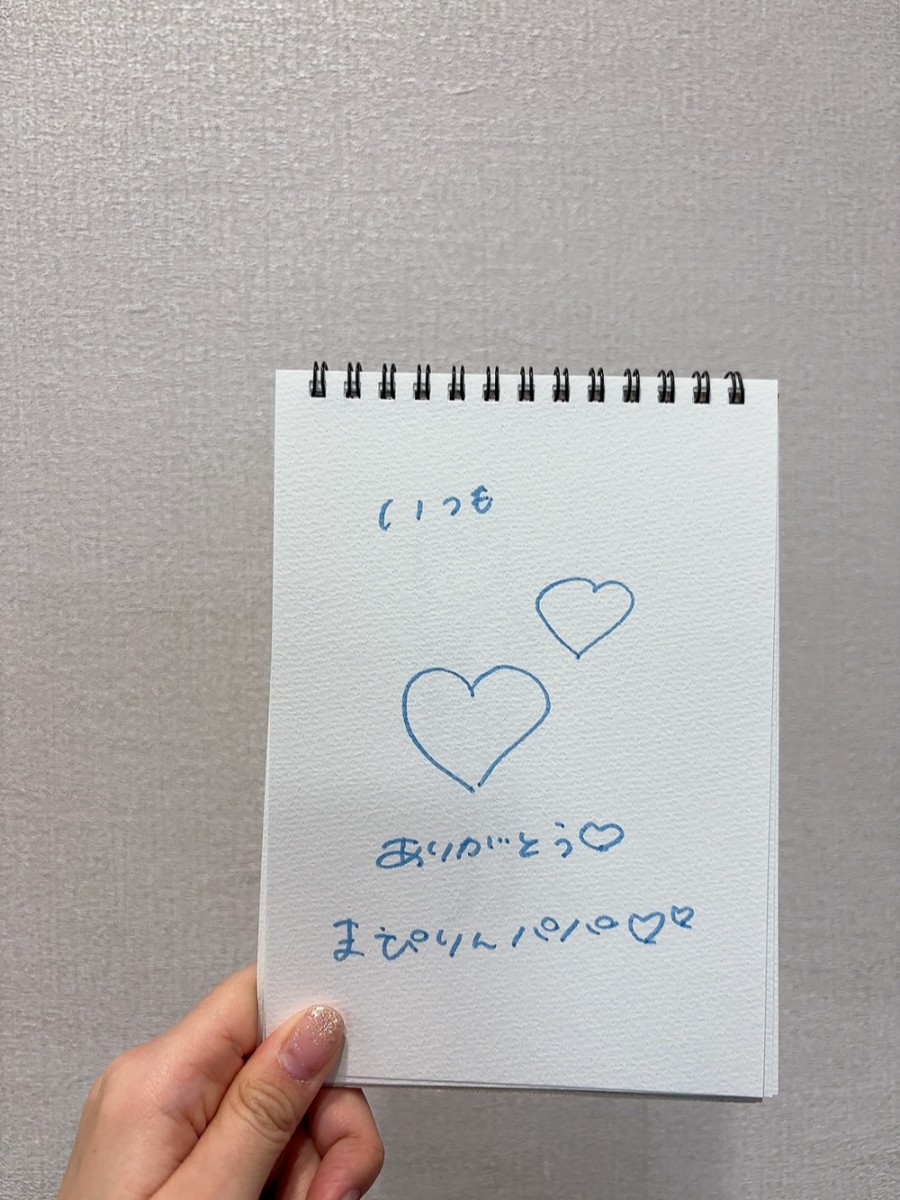 いつも
ありがとう♡
まぴりんパパ♡♡